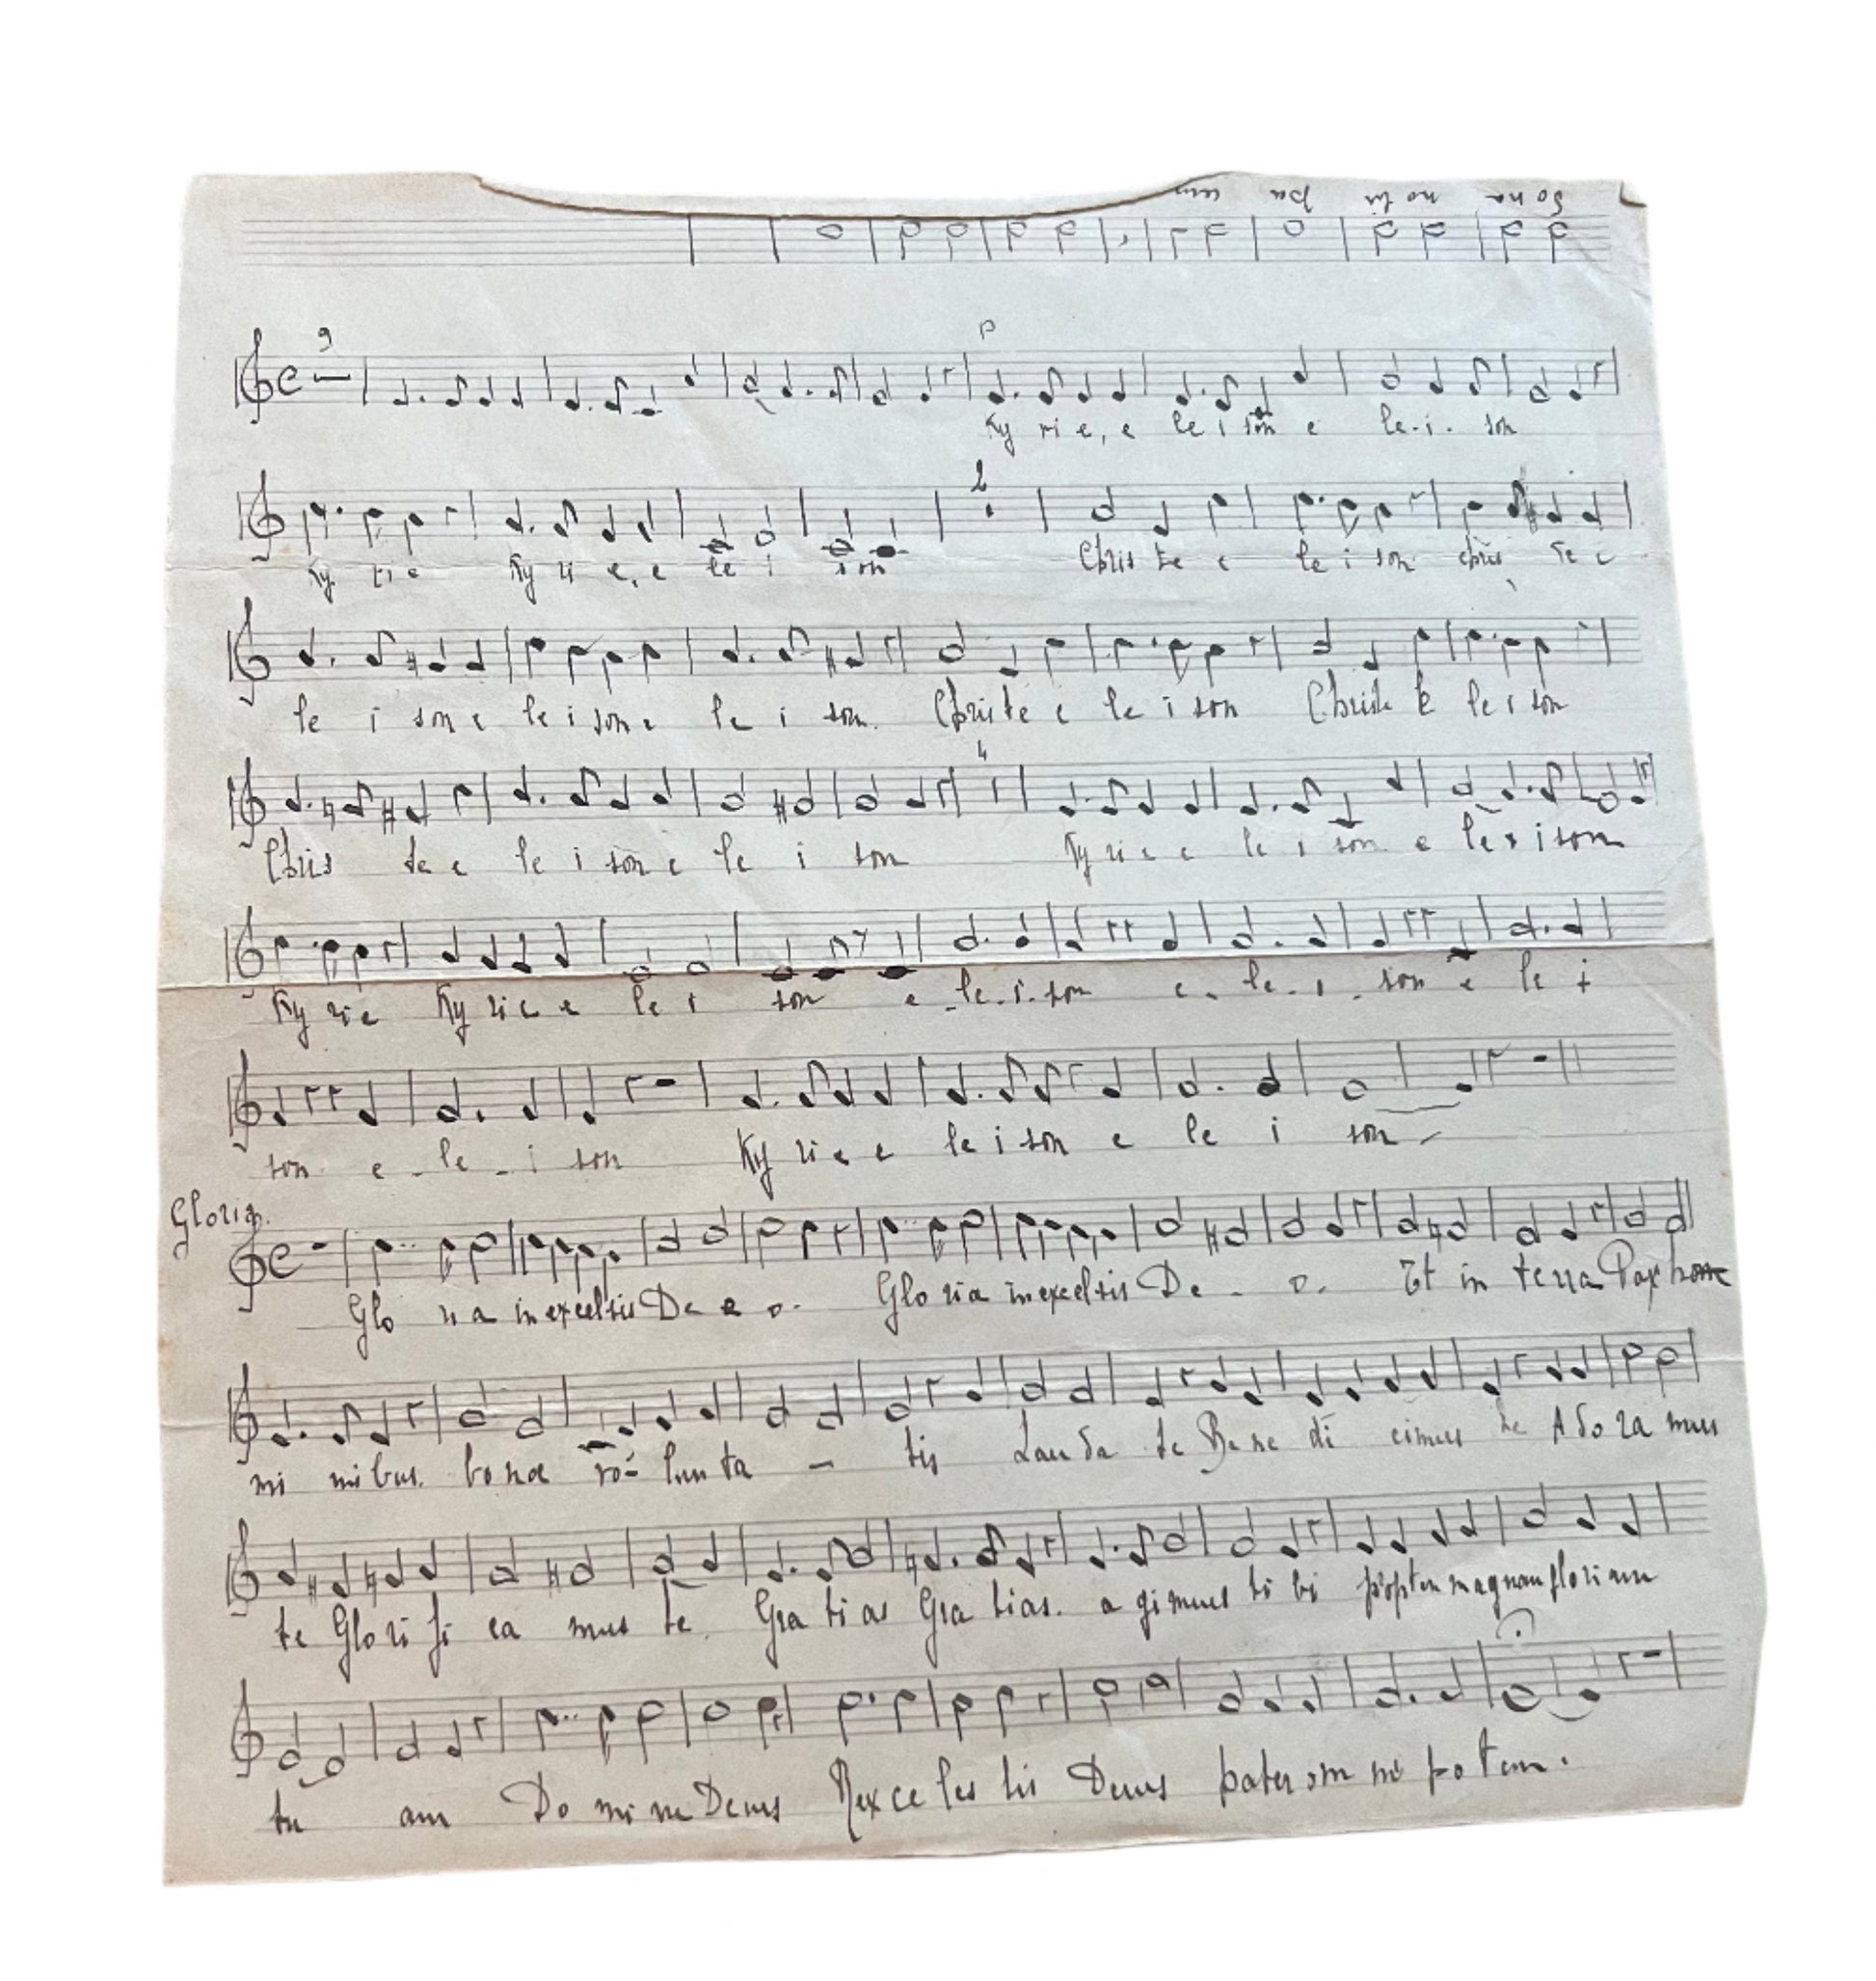 Do na no bis pa cem
9
p
Ky ri e, e le i son e le-i. son
2
Ky rie Ky ri e, e le i son Chris te e le i son chris te e
le i son e le i son e le i son. Christe e le i son Christe E le i son
4
Chris te e le i son e le i son Ky ri e e le i son e le i son
Ky rie Ky ri e e le i son e _ le. i. son e _ le _ i _ son e le i
son e _ le _ i son Ky ri e e le i son e le i son
Gloria.
Glo ri a in excelsis De e o. Glo ria in excelsis De _ o. Et in terra Pax
mi nibus. bonae vo- lun ta _ tis Lau da te Be ne di cimus te Ado ra mus
te Glo ri fi ca mus te. Gra ti as Gra tias. a gimus ti bi propter magnam gloriam
tu am Do mi ne Deus Rex ce les tis Deus pater om ni po tem.